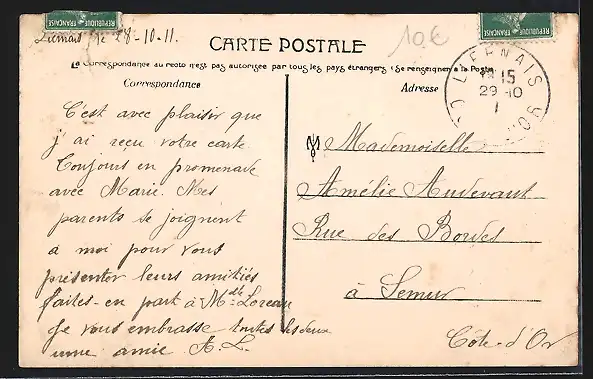 REPUBLIQUE FRANÇAISE
REPUBLIQUE FRANÇAISE
le 28-10-11.
CARTE POSTALE
10€
La Correspondance au recto n'est pas autorisée par tous les pays étrangers (Se renseigner à la Poste)
Correspondance
Adresse
LIERNAIS
15
29-10
C'est avec plaisir que
j'ai reçu votre carte
Toujours en promenade
avec Marie. Mes
parents se joignent
à moi pour vous
présenter leurs amitiés
faites-en part à Mlle Loreau
Je vous embrasse toutes les deux
une amie A. L.
Mademoiselle
Amélie Audevant
Rue des Bordes
à Semur
Côte-d'Or